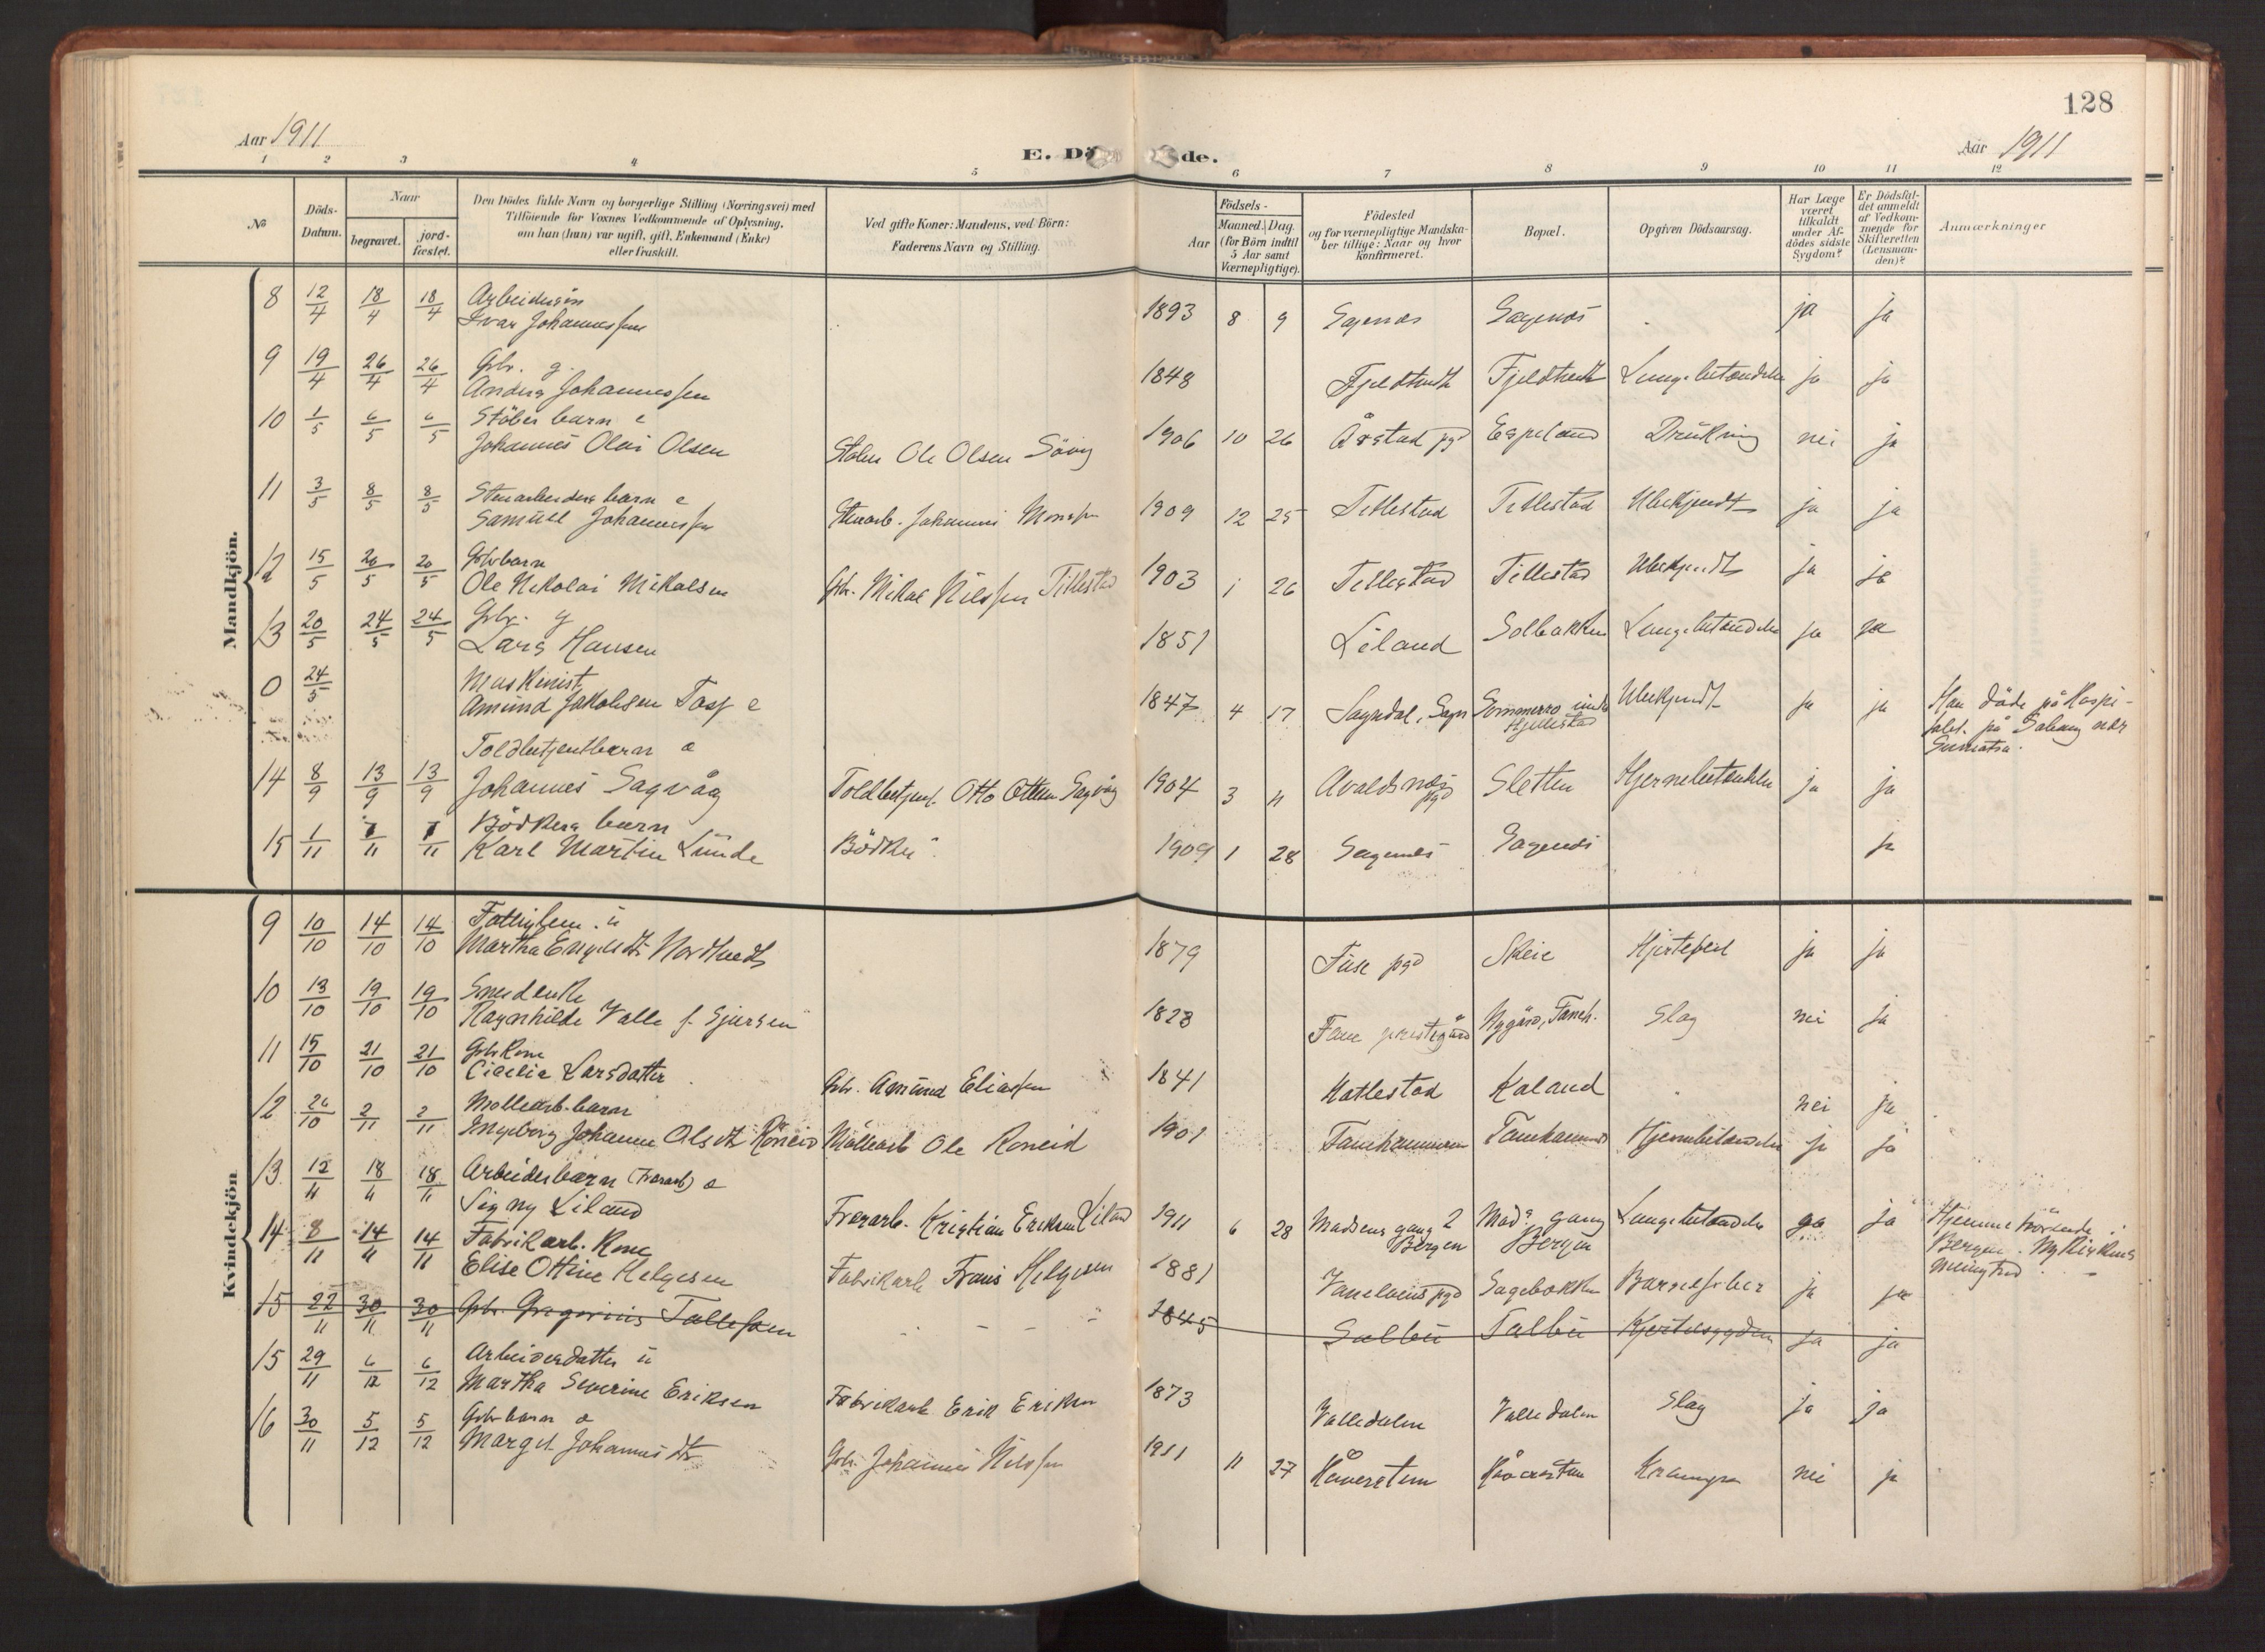 128
Aar 1911
E. Dö
de.
Aar 1911
1 2 3 4 5 6 7 8 9 10 11 12
№
Döds-
Datum.
Naar
begravet.
jord-
fæstet.
Den Dödes fulde Navn og borgerlige Stilling (Næringsvei) med
Tilföiende for Voxnes Vedkommende af Oplysning,
om han (hun) var ugift, gift, Enkemand (Enke)
eller fraskilt.
Ved gifte Koner: Mandens, ved Börn:
Faderens Navn og Stilling.
Födsels-
Aar
Maaned.
Dag.
(for Börn indtil
5 Aar samt
Værnepligtige).
Födested
og for værnepligtige Mandska-
ber tillige: Naar og hvor
konfirmeret.
Bopæl.
Opgiven Dödsaarsag.
Har Læge
været
tilkaldt
under Af-
dödes sidste
Sygdom?
Er Dödsfal-
det anmeldt
af Vedkom-
mende for
Skifteretten
(Lensman-
den)?
Anmærkninger
Mandkjön.
8 12/4 18/4 18/4 Arbeidersön
Ivar Johannessen 1893 8 9 Sagenæs Sagenæs ja ja
9 19/4 26/4 26/4 Gbr. g.
Anders Johannessen 1848 Fjeldtvedt Fjeldtvedt Lungebetændelse ja ja
10 1/5 6/5 6/5 Stöbers barn e
Johannes Olai Olsen Stöber Ole Olsen Sövig 1906 10 26 Årstad pgd Espeland Drukning nei ja
11 3/5 8/5 8/5 Stenarbeiders barn e
Samuel Johannessen Stenarb. Johannes Monsen 1909 12 25 Titlestad Titlestad Ubekjendt ja ja
12 15/5 20/5 20/5 Gbr barn
Ole Nikolai Mikalsen Gbr. Mikal Nilssen Titlestad 1903 1 26 Titlestad Titlestad Ubekjendt ja ja
13 20/5 24/5 24/5 Gbr. g
Lars Hansen 1851 Liland Solbakken Lungebetændelse ja ja
0 24/5 Maskinist
Amund Jakobsen e 1847 4 17 Sogndal, Sogn Sommerro under Hjellestad Ubekjendt ja ja Han döde på Hospi-
talet på Sabang ved
Sumatra.
Toldbetjentbarn e
14 8/9 13/9 13/9 Johannes Sagvåg Toldbetjent Otto Ottesen Sagvåg 1904 3 11 Avaldsnes pgd Sletten Hjernebetændelse ja ja
Bödkers barn
15 1/11 7/11 7/11 Karl Martin Lunde Bödker 1909 1 28 Sagenes Sagenæs ja
Kvindekjön
9 10/10 14/10 14/10 Fattiglem. u
Martha Engelsdtr Nordtvedt 1879 Fuse pgd Skeie Hjertefeil ja ja
10 13/10 19/10 19/10 Smedenke
Ragnhilde Valle f. Sjursen 1823 Fane prestegård Nygård, Faneh. Slag nei ja
11 15/10 21/10 21/10 Gbr Kone
Cicelie Larsdatter Gbr. Amund Eliassen 1841 Hatlestad Kaland nei ja
12 26/10 2/11 2/11 Möllearb. barn
Ingeborg Johanne Olsdtr Röneid Möllearb Ole Roneid 1901 Fanehammeren Fanehammeren Hjernebetændelse ja ja
13 12/11 18/11 18/11 Arbeiderbarn e
Signy Liland Kristian Eriksen Liland 1911 6 28 Madsens gang 2 Bergen Mads. gang Bergen Lungebetændelse ja ja Hjemmehörende i
Bergen. Nykirkens
menighed.
14 8/11 14/11 14/11 Fabrikarb. Kone
Elise Ottine Helgesen Fabrikarb Frans Helgesen 1881 Vanelvens pgd Sagebakken Barselfeber ja ja
15 22/11 30/11 30/11 Gbr Gregorius Tollefsen 1845 Salbu Salbu Hjertesygdom ja ja
15 29/11 6/12 6/12 Arbeiderdatter u
Martha Severine Eriksen Fabrikarb Erik Eriksen 1873 Valledalen Valledalen Slag ja ja
16 30/11 5/12 5/12 Gbr barn e
Marget Johannesdtr Gbr. Johannes Nilssen 1911 11 27 Håverstun Håverstun Krampe nei ja